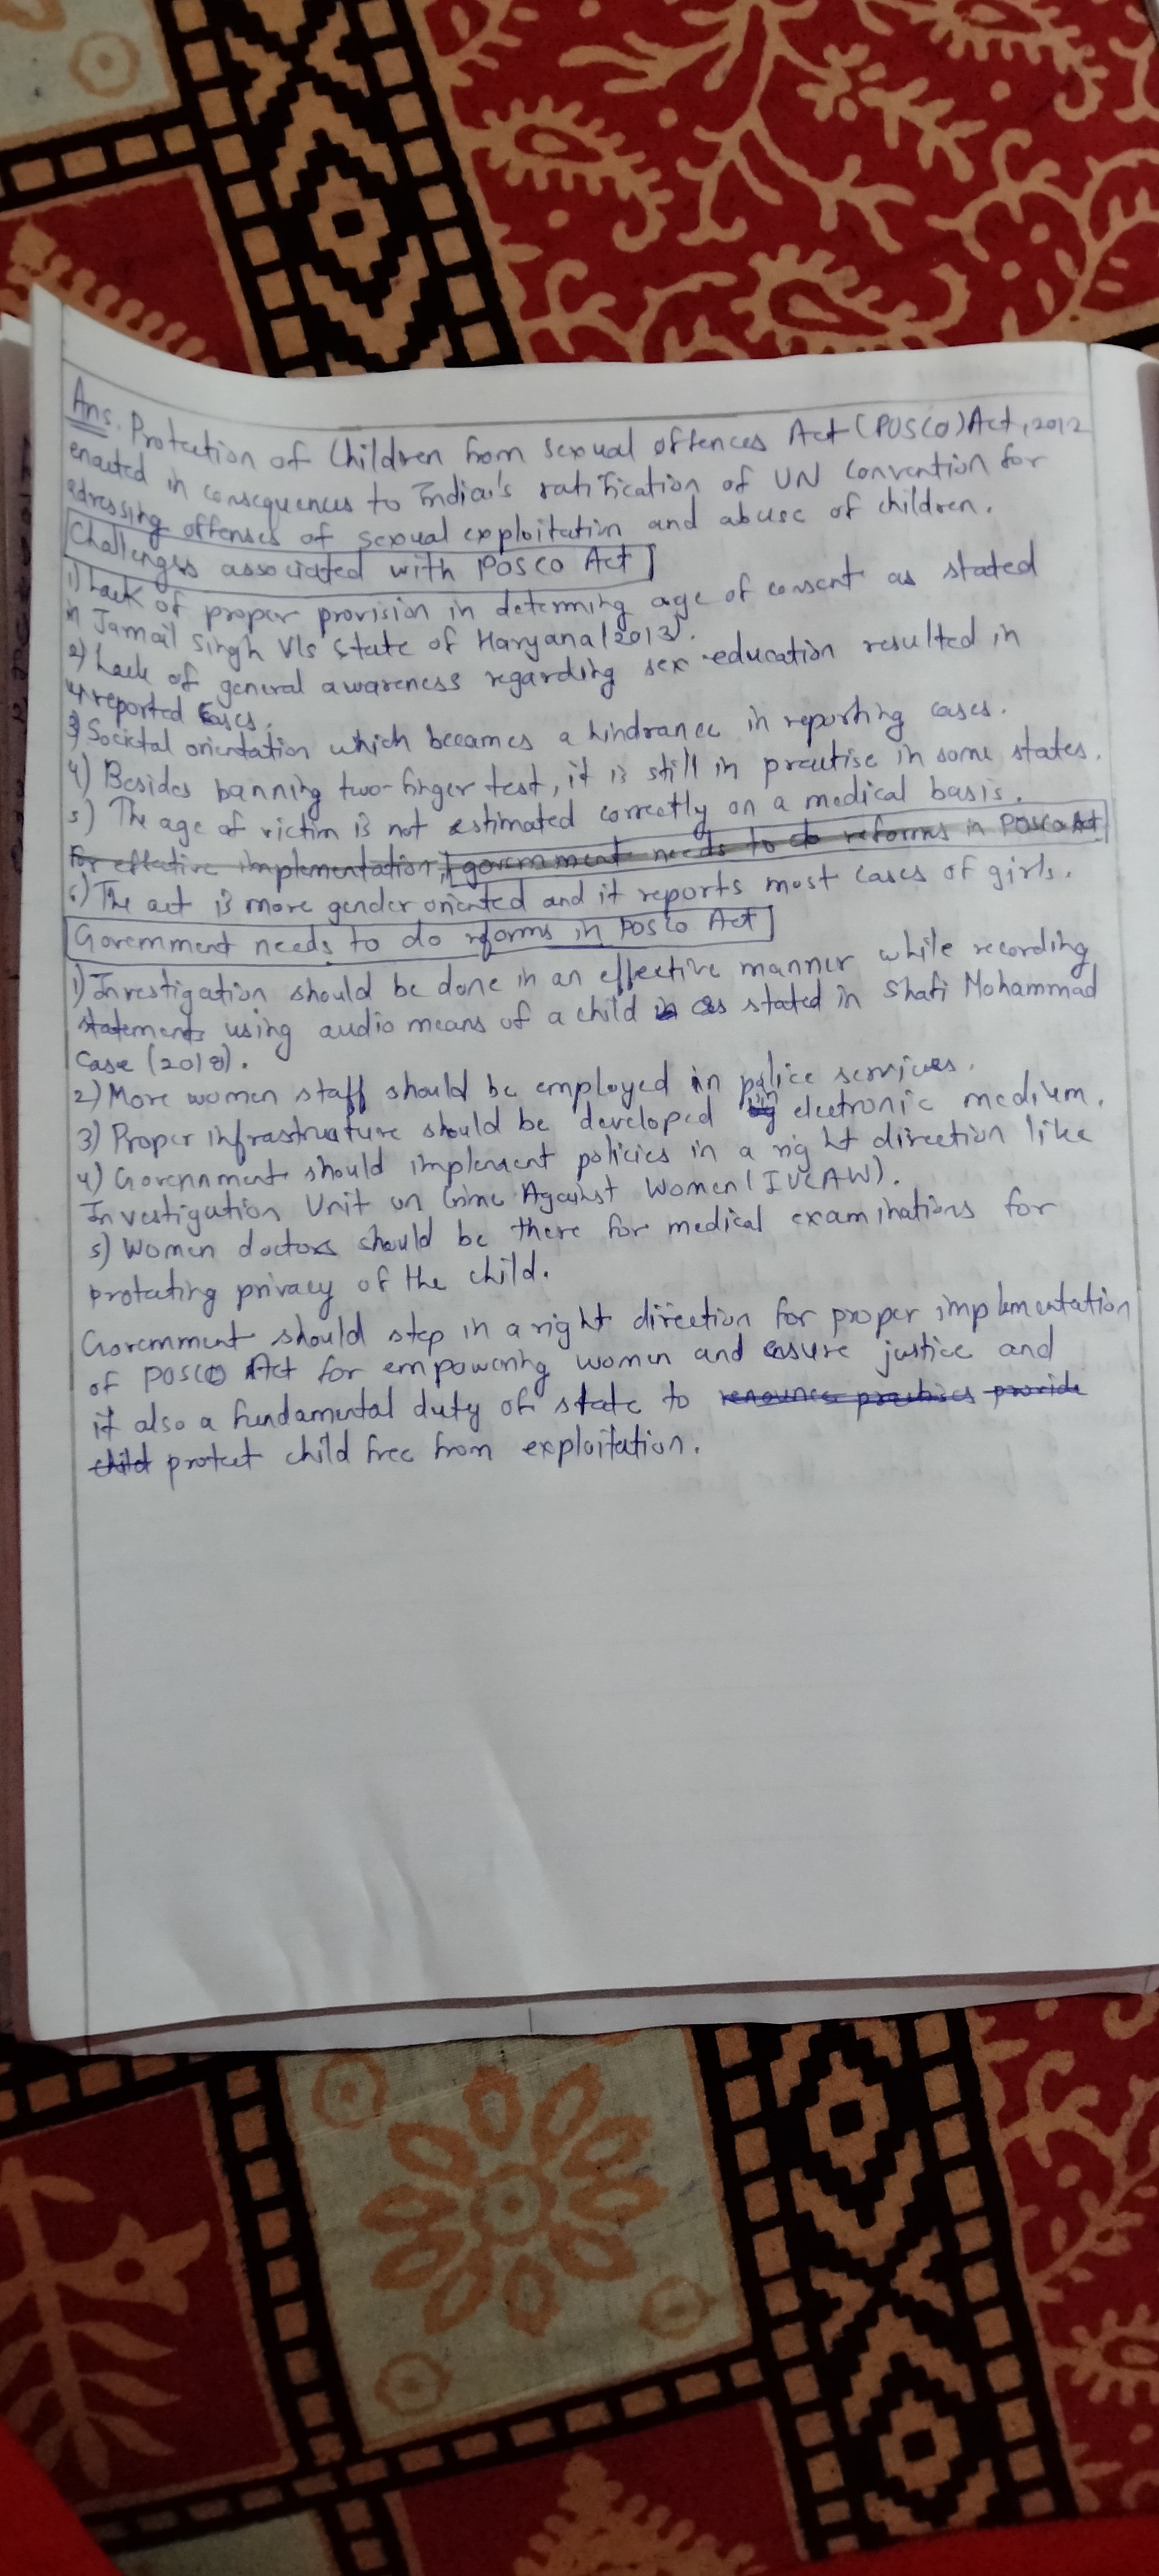 Ans. Protection of Children from sexual offences Act (POSCO) Act, 2012
enacted in consequences to India's ratification of UN Convention for
adressing offenses of sexual exploitation and abuse of children.
Challenges associated with POSCO Act
1) Lack of proper provision in determing age of consent as stated
in Jarnail Singh V/s State of Haryana (2013).
2) Lack of general awareness regarding sex education resulted in
reported cases.
3) Societal orientation which becames a hindrance in reporting cases.
4) Besides banning two-finger test, it is still in practise in some states.
5) The age of victim is not estimated correctly on a medical basis.
For effective implementation, government needs to do reforms in POSCO Act
6) The act is more gender oriented and it reports most cases of girls.
Government needs to do reforms in POSCO Act
1) Investigation should be done in an effective manner while recording
statements using audio means of a child as stated in Shafi Mohammad
Case (2018).
2) More women staff should be employed in police services.
3) Proper infrastructure should be developed in electronic medium.
4) Government should implement policies in a right direction like
Investigation Unit on Crime Against Women (IUCAW).
5) Women doctors should be there for medical examinations for
protating privacy of the child.
Government should step in a right direction for proper implementation
of POSCO Act for empowering women and ensure justice and
it also a fundamental duty of state to renounce practices provide
child protect child free from exploitation.